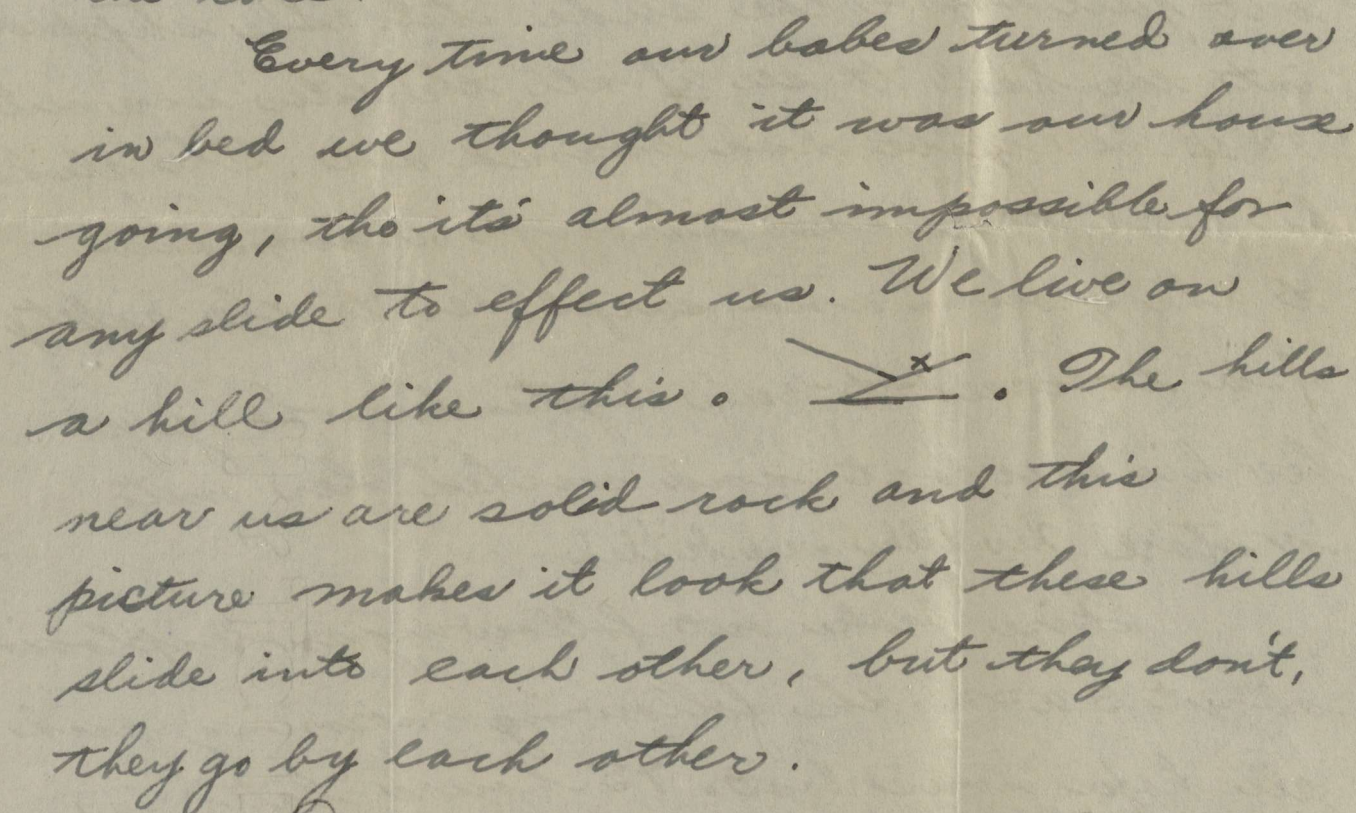 Every time our babes turned over
in bed we thought it was our house
going, tho its almost impossible for
any slide to effect us. We live on
a hill like this. . The hills
near us are solid rock and this
picture makes it look that these hills
slide into each other, but they don't,
they go by each other.